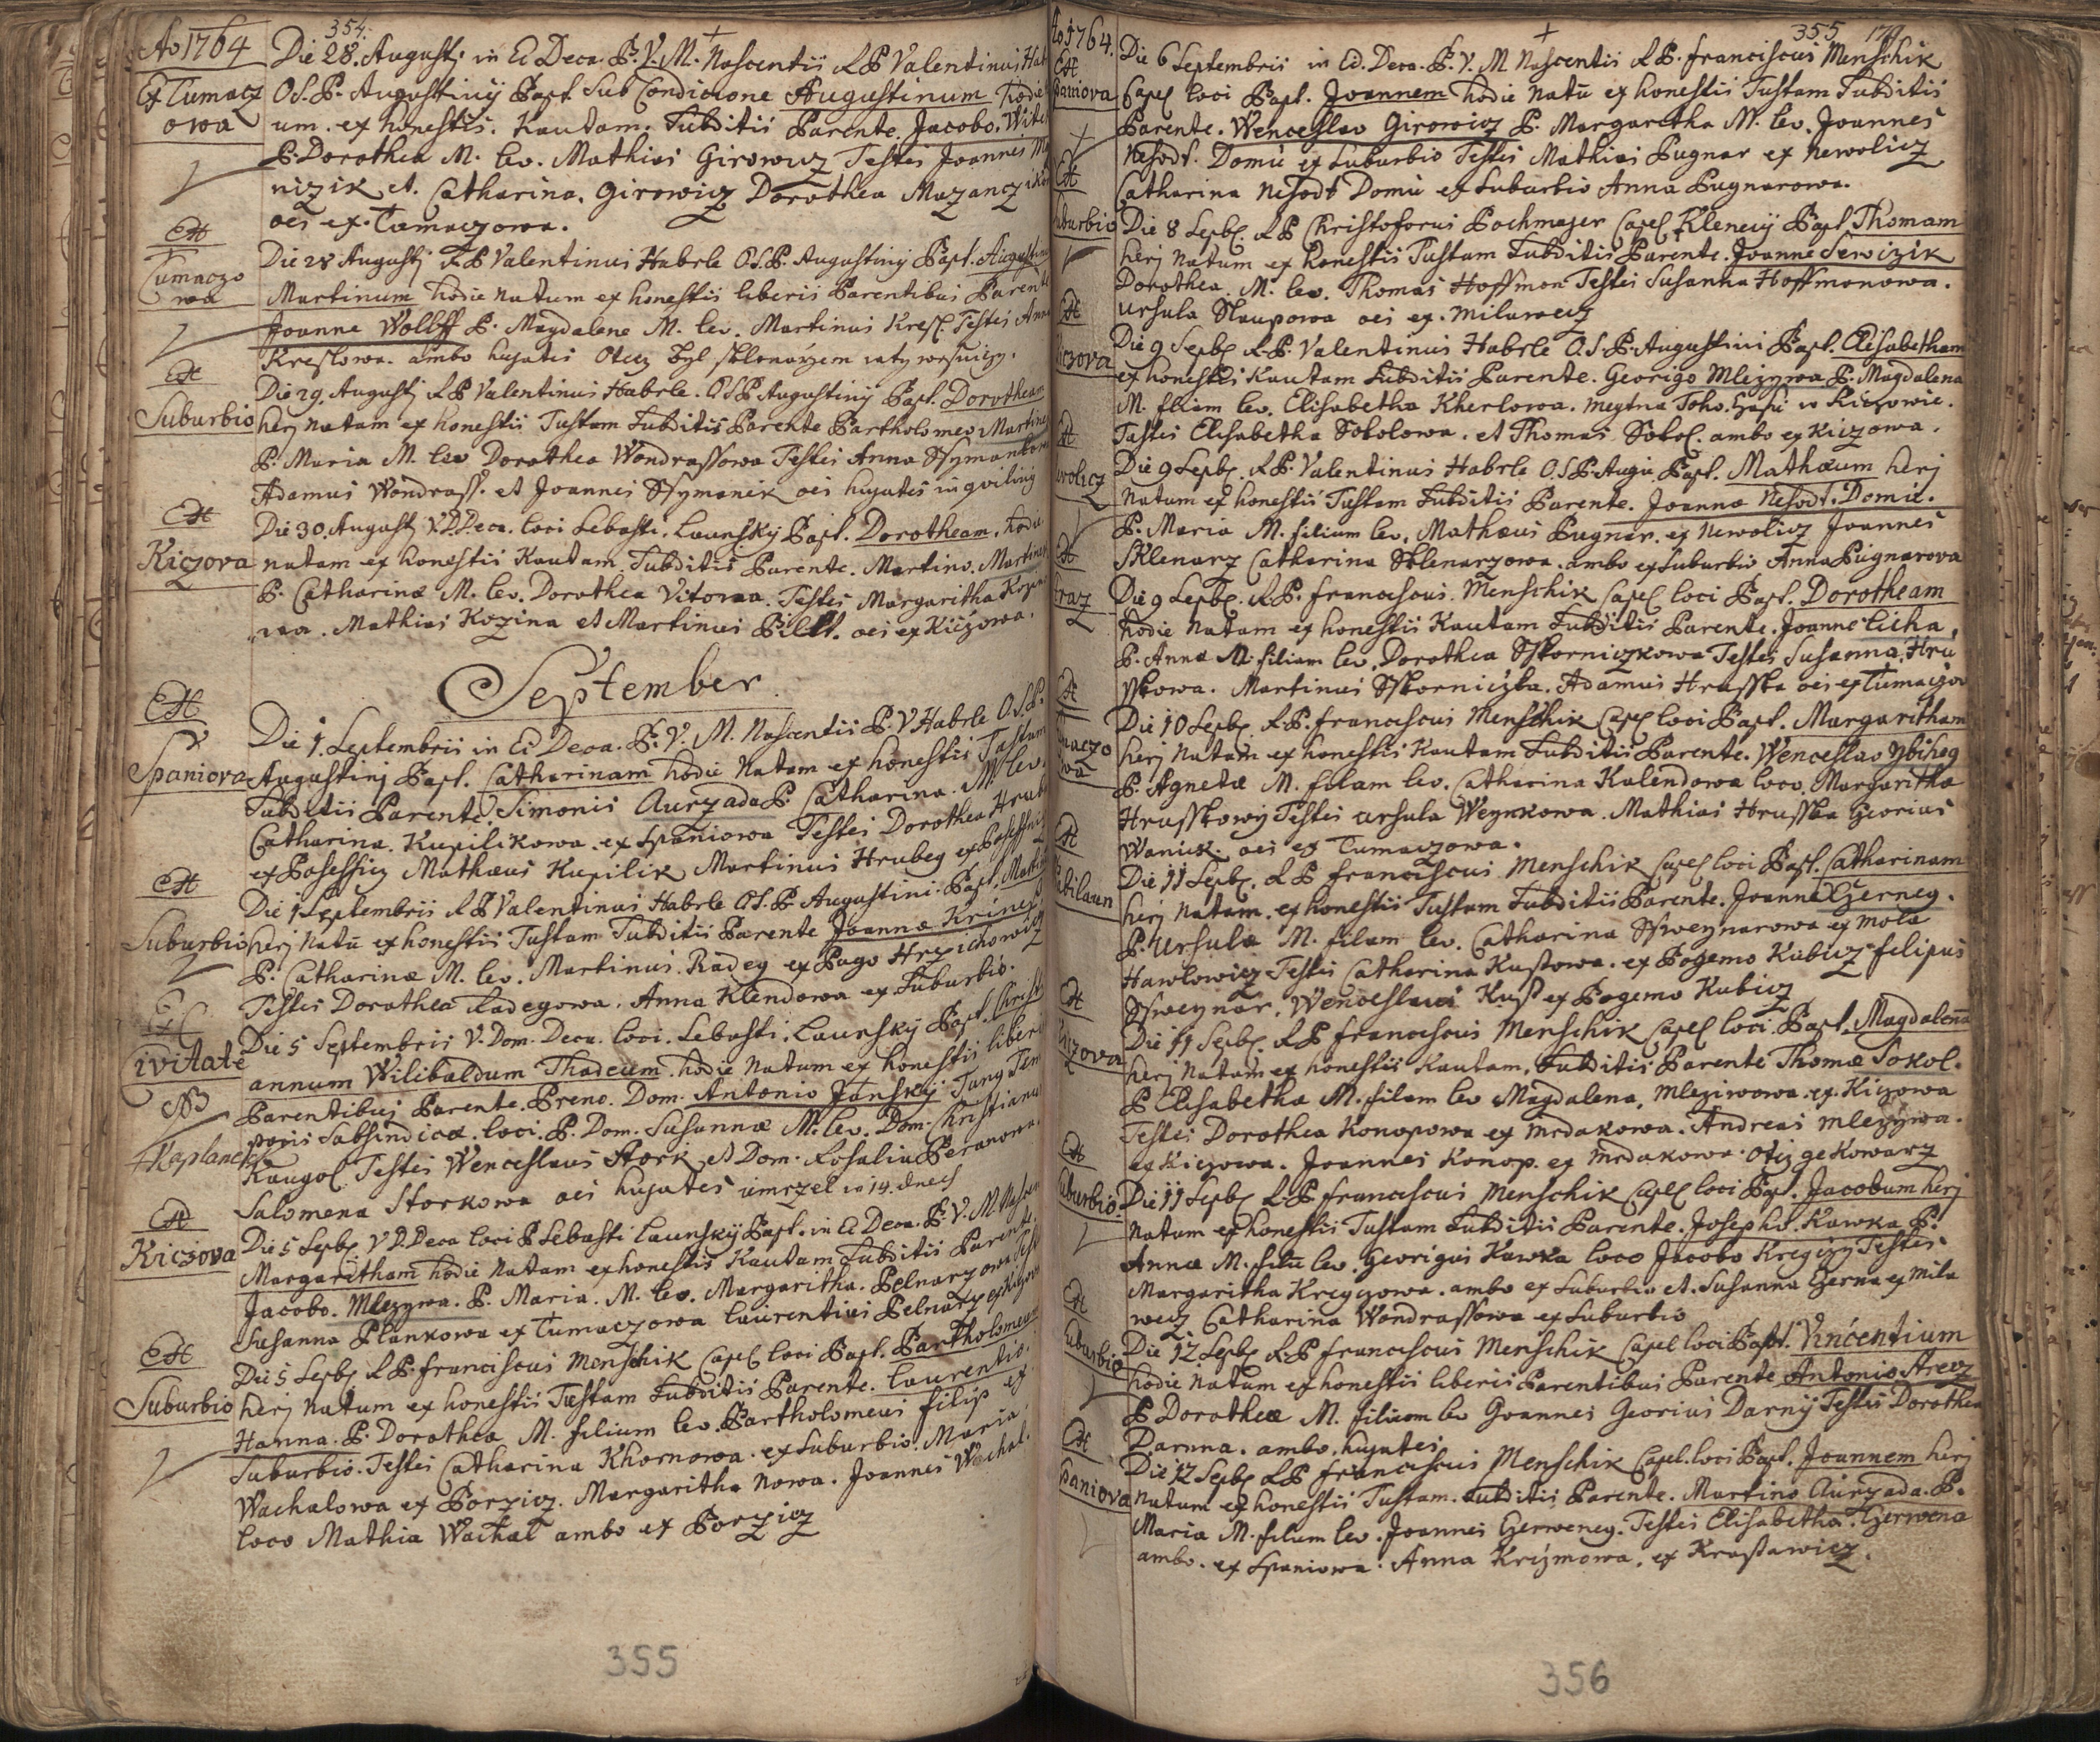 354.
Ao 1764
Die 28. Augusti in Ec Deca. B. V. M. Nascentis R P Valentinus Hab
Ex Tumacz
O. S. P. Augustinij Bapt. Sub Condicione Augustinum hodie
owa
um. ex honestis. Kautam. Subditis Parente. Jacobo. Wite
P. Dorothea M. lev. Mathias Girowicz Testes Joannes
nizik et. Catharina. Girowicz Dorothea Mazanczikow
oes ex. Tumaczowa.
Ex
Tumaczo
wa
Die 28 Augusti R P Valentinus Habrle O S. P. Augustinij Bapt. Augustin
Martinum hodie Natum ex honestis liberis Parentibus Parente
Joanne Wolff P. Magdalena M. lev. Martinus Kresl. Testes Anna
Kreslowa. ambo hujates Otecz byl sklenarzem
Ex
Suburbio
Die 29. Augusti R P Valentinus Habrle. O S P Augustinij Bapt. Dorotheam
herj natam ex honestis Tustam Subditis Parente Bartholomeo Martine
P. Maria M. lev Dorothea Wondrassowa Testes Anna Ssymankow
Adamus Wondrass. et Joannes Ssymanek oes hujates inquilinij
Ex
Kiczova
Die 30. Augusti V. D. Deca. loci Sebasti. Launsky Bapt. Dorotheam. hodie
natam ex honestis Kautam. Subditis Parente. Martino. Martine
P. Catharinæ M. lev. Dorothea Vitowa. Testes Margaritha Kozino
wa. Mathias Kozina et Martinus Pilst. oes ex Kiczowa.
September
Ex
Spaniova
Die 1. Septembris in Ec Deca. B. V. M. Nascentis P. V Habrle O. S. P.
Augustinj Bapt. Catharinam hodie Natam ex honestis Tustam
Subditis Parente Simonis Aurzada P. Catharina. M lev.
Catharina. Kupilikowa. ex Spaniowa Testes Dorothea Hrub
ex Posessicz Mathæus Kupilik Martinus Hrubeg ex Posessicz
Ex
Suburbio
Die 1 Septembris R P Valentinus Habrle O S. P. Augustini. Bapt. Marti
herj Natū ex honestis Tustam Subditis Parente Joanne Krines
P. Catharinæ M. lev. Martinus. Radeg ex Pago Hrzichowicz
Testes Dorothea Radegowa. Anna Klendowa ex Suburbio.
Ex C
ivitate
Die 5 Septembris V. Dom. Deca. loci. Sebasti. Launsky Bapt. Christi
annum Wilibaldum Thadeum. hodie Natum ex honestis liberis
NB
Parentibus Parente. Preno. Dom. Antonio Janskij Tunq Tem
poris Subsindica. loci. P. Dom. Susannæ M. lev. Dom. Christianus
+ Kaplanek
Kaugol. Testes Wenceslaus Stork et Dom. Rosalia Beranowa
Salomena Storkowa oes hujates umrzel w 14. dnech
Ex
Kiczova
Die 5 Sepbr V D. Deca loci P Sebasti Launskij Bapt. in Ec Deca. B. V. M. Nascen
Margaritham hodie Natam ex honestis Kautam Subditis Parente.
Jacobo. Mlezywa. P. Maria. M. lev. Margaritha. Pelnarzowa. Test
Susanna Plankowa ex Tumaczowa laurentius Pelnarz ex Kiczowa
Ex
Suburbio
Die 5 Sepbr R P. franciscus Menschik Capel loci Bapt. Bartholomeum
herj Natum ex honestis Tustam Subditis Parente. laurentio.
Hanna. P. Dorothea M. filium lev. Bartholomeus filip ex
Suburbio. Testes Catharina Khornowa. ex Suburbio. Maria.
Wachalowa ex Porzicz. Margaritha Nowa. Joannes Wachal.
loco Mathia Wachal ambo ex Porzicz
355
355
Ao 1764.
Ex
paniova
Die 6 Septembris in Ec. Deca. B. V. M Nascentis R P. franciscus Menschik
Capel loci Bapt. Joannem hodie Natū ex honestis Tustam Subditis
Parente. Wenceslao Girowicz P. Margaretha M. lev. Joannes
Nesodt. Domū ex Suburbio Testes Mathias Pugnar ex Newolicz
Catharina Nesodt Domū ex Suburbio Anna Pugnarowa.
Ex
uburbio
Die 8 Sepbr. R P Christoforus Pachmajer Capel Klenecij Bapt. Thomam
herj Natum ex honestis Tustam Subditis Parente. Joanne Serwizik
Dorothea. M. lev. Thomas Hoffmon Testes Susanna Hoffmonowa.
Ursula Slaupowa oes ex. Milawecz
Ex
iczova
Die 9 Sepbr R. P. Valentinus Habrle O. S. P. Augustini Bapt. Elisabetham
ex honestis Kautam Subditis Parente. Georigo Mlezywa P. Magdalena
M. filiam lev. Elisabetha Kherlowa. meytna toho. czasu w Kiczowie.
Testes Elisabetha Sokolowa. et Thomas Sokol. ambo ex Kiczowa.
Ex
wolicz
Die 9 Sepbr. R. P. Valentinus Habrle O. S. P. Augu. Bapt. Mathæum herj
Natum ex honestis Tustam Subditis Parente. Joanne Nesodt. Domū.
P. Maria M. filium lev. Mathæus Pugnar. ex Newolicz Joannes
Sklenarz Catharina Sklenarzowa. ambo ex Suburbio Anna Pugnarova
Ex
Die 9 Sepbr. R. P. franciscus. Menschik Capel loci Bapt. Dorotheam
hodie Natam ex honestis Kautam Subditis Parente. Joanne Cicha.
P. Anna M. filiam lev. Dorothea Sskorniczkowa Testes Susanna. Hru
sskowa. Martinus Sskorniczka. Adamus Hrusska oes ex Tumaczow
Ex
maczo
wa
Die 10 Sepbr. R. P. franciscus Menschik Capel loci Bapt. Margaritham
herj Natam ex honestis Kautam Subditis Parente. Wenceslao Zbiheg
P. Agneta M. filam lev. Catharina Kalendowa loco. Margaritha
Hrusskowij Testes Ursula Weynkowa. Mathias Hrusska Georius
Waniek. oes ex Tumaczowa.
Ex
Die 11 Sepbr. R P franciscus Menschik Capel loci Bapt. Catharinam
herj Natam. ex honestis Tustam Subditis Parente. Joanne Czerneg.
P. Ursula M. filam lev. Catharina Ssweynarowa ex mola
Hawlowicz Testes Catharina Kustowa. ex Pozemo Kubicz filipus
Ssweynar. Wenceslaus Kust ex Pogemo Kubicz
Ex
iczova
Die 11 Sepbr R P franciscus Menschik Capel loci. Bapt. Magdalena
herj Natam ex honestis Kautam. Subditis Parente Thomæ Sokol.
P Elisabetha M. filam lev Magdalena. Mleziwowa. ex. Kiczowa
Testes Dorothea Konopowa ex Mrdakowa. Andreas Mlezywa.
ex Kiczowa. Joannes Konop. ex Mrdakowa. Otecz ge Kowarz
Ex
uburbio.
Die 11 Sepbr R. P franciscus Menschik Capel loci Bap. Jacobum herj
Natum ex honestis Tustam Subditis Parente. Josepho. Kawka P.
Annæ M. filū lev. Georigus Kawka loco Jacobo Kregczy Testes.
Margaritha Kregczowa. ambo ex Suburbio et. Susanna Czerna ex Mila
wecz Catharina Wondrassowa ex Suburbio
Ex
uburbio
Die 12. Sepbr R. P franciscus Menschik Capel loci Bapt. Vincentium
hodie Natum ex honestis liberis Parentibus Parente Antonio Arecz
P Dorotheæ M. filium lev Joannes Georius Darny Testes Dorothea
Darnna. ambo. hujates
Ex
Spaniova
Die 12 Sepbr R P franciscus Menschik Capel. loci Bapt. Joannem herj
Natum ex honestis Tustam. Subditis Parente. Martino Aurzada. P.
Maria M. filum lev. Joannes Czerweneg. Testes Elisabetha. Czerwena
ambo. ex Spaniowa. Anna Krizmowa. ex Krastawicz.
356